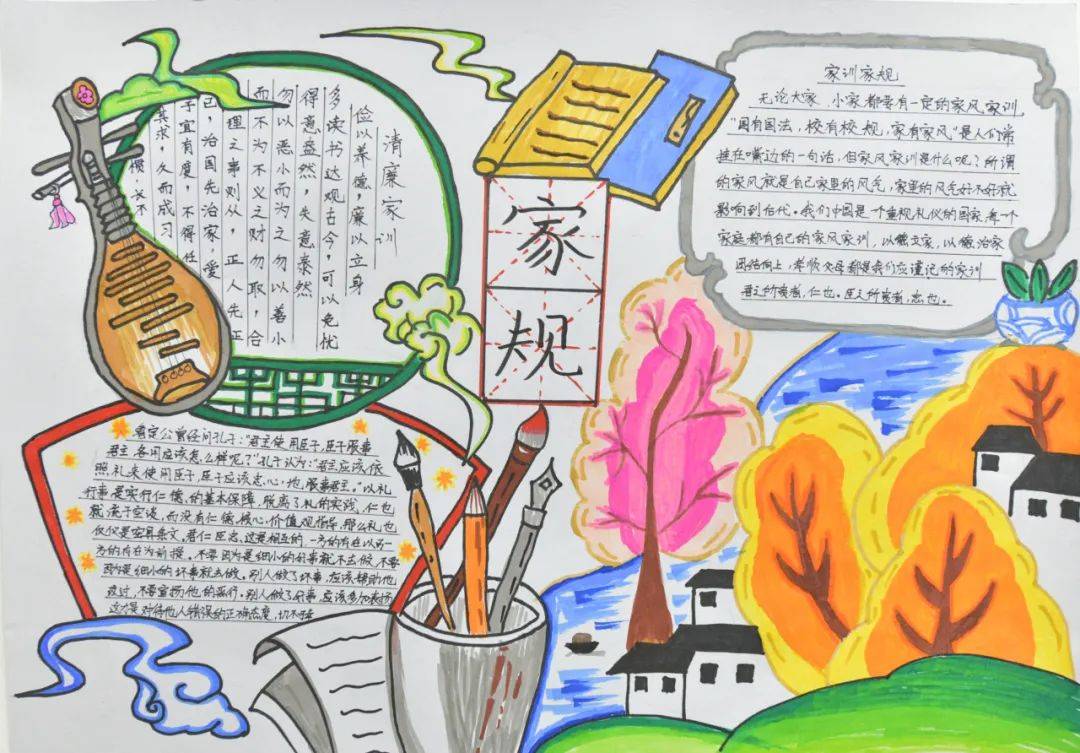 清廉家训
俭以养德,廉以立身
多读书达观古今,可以免忧
得意盎然,失意泰然
勿以恶小而为之勿以善小
而不为不义之财勿取,合
理之事则从,正人先正
己,治国先治家,爱
子宜有度,不得任
其求,久而成习
惯
家
规
家训家规
无论大家,小家都要有一定的家风家训
"国有国法,校有校规,家有家风"是人们常
挂在嘴边的一句话,但家风家训是什么呢?所谓
的家风就是自己家里的风气,家里的风气好不好就
影响到后代。我们中国是一个重视礼仪的国家,每一个
家庭都有自己的家风家训,以德立家,以德治家
团结向上,孝顺父母都是我们应谨记的家训
君之所贵者,仁也。臣之所贵者,忠也。
鲁定公曾经问孔子:"君主使用臣子,臣子服事
君主,各用应该怎么样呢?"孔子认为:"君主应该依
照礼来使用臣子,臣子应该忠心地服事君主。"以礼
行事是实行仁德的基本保障,脱离了礼的实践,仁也
就流于空谈,而没有仁德核心价值观指导,那么礼也
仅仅是空算条文。君仁臣忠,这是相互的一方的存在以另一
方的存在为前提。不要因为是细小的好事就不去做,不要
因为是细小的坏事就去做。别人做了坏事,应该帮助他
改过,不要宣扬他的恶行。别人做了好事,应该多加表扬
这才是对待他人错误的正确态度,切不可